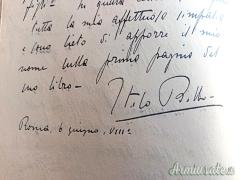 tutta la mia affettuosa simpatia
e sono lieto di apporre il mio
nome nella prima pagina del
suo libro -
Italo Balbo
Roma, 6 giugno, VIIIº
Armiusate.it